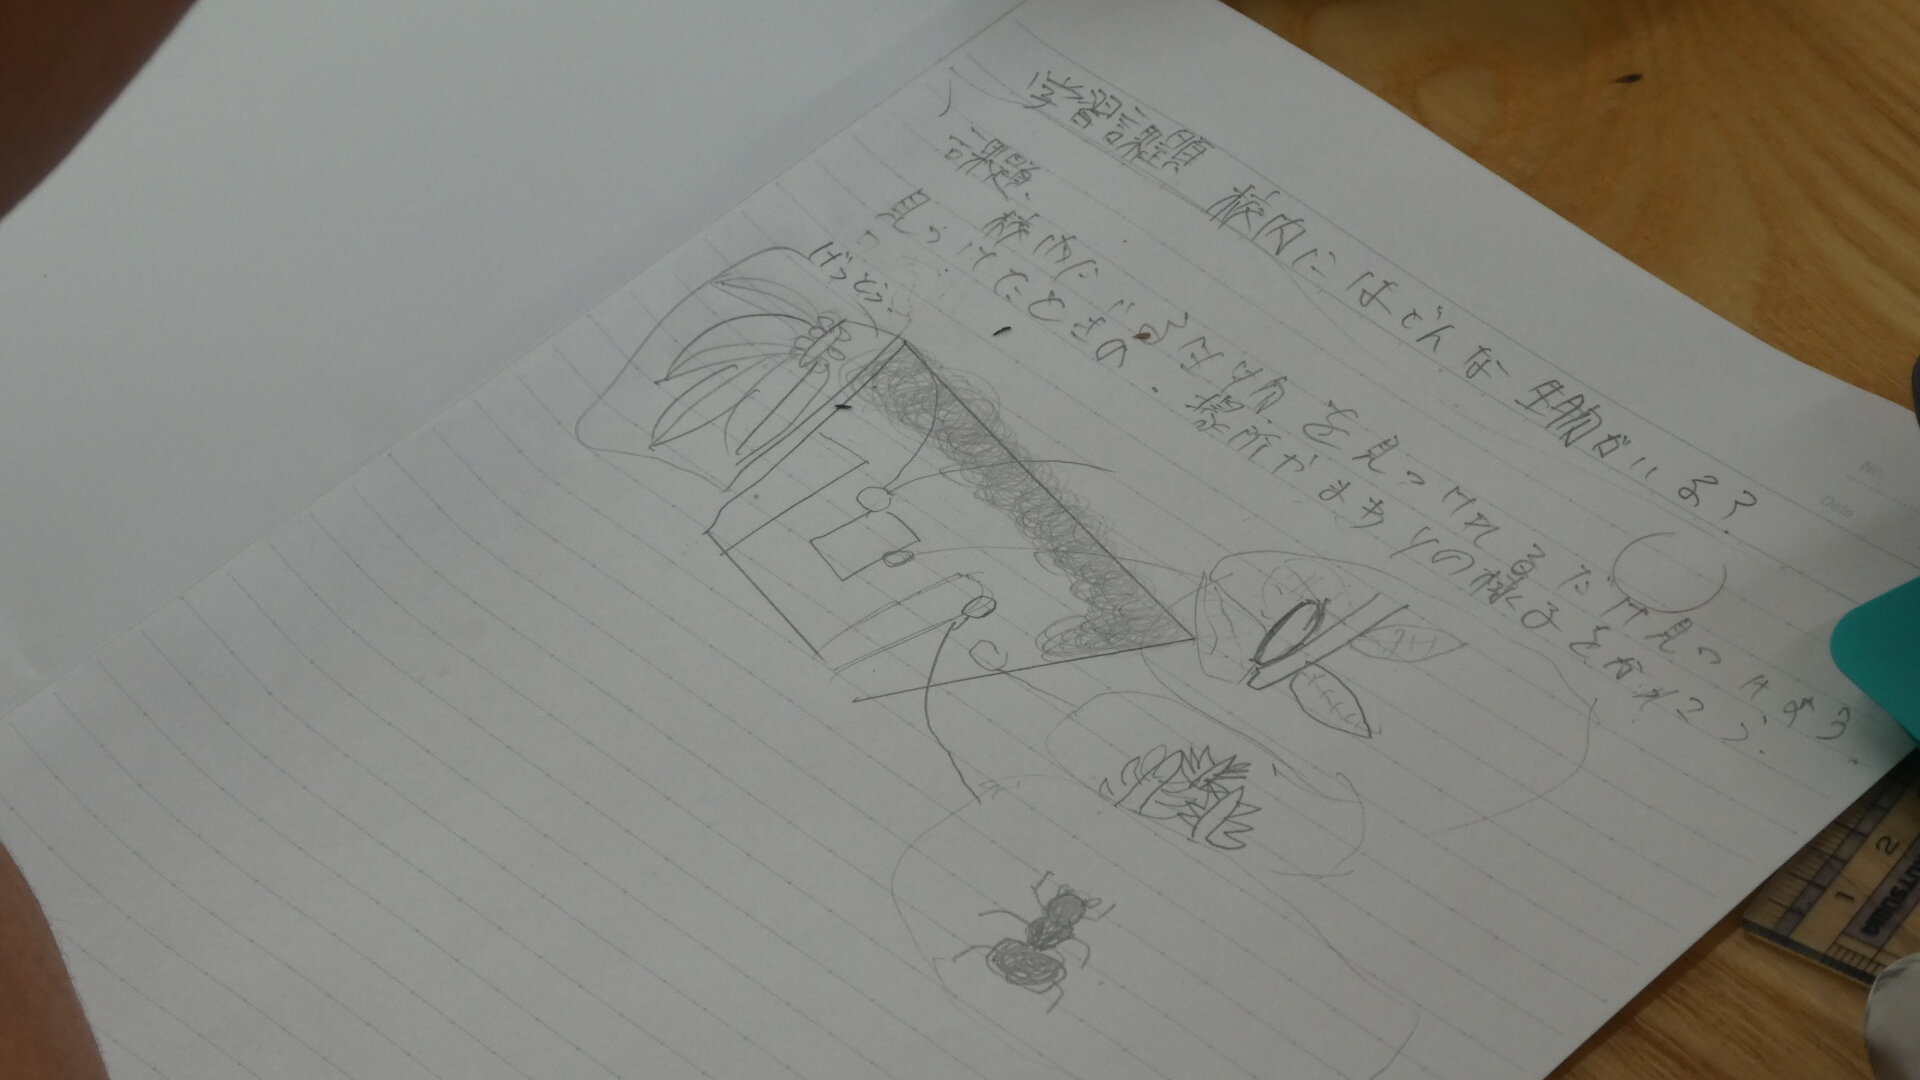 学習課題 校内にはどんな生物がいる?
課題.
校内にいる生物を見つけれるだけ見つけよう.
見つけたときの.場所やまわりの様子をかおう.
げっとう.
No.
Date
1 2